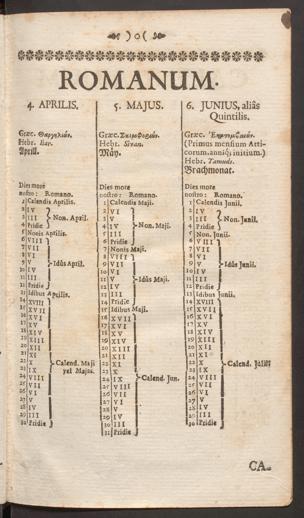 )o(
ROMANUM.
4. APRILIS.
Græc. Θαργηλιών.
Hebr. Iiar.
April.
Dies more
nostro: Romano.
1 Calendis Aprilis.
2 IV
3 III
4 Pridie
Non. April.
5 Nonis Aprilis.
6 VIII
7 VII
8 VI
9 V
10 IV
11 III
12 Pridie
Idûs April.
13 Idibus Aprilis.
14 XVIII
15 XVII
16 XVI
17 XV
18 XIV
19 XIII
20 XII
21 XI
22 X
23 IX
24 VIII
25 VII
26 VI
27 V
28 IV
29 III
30 Pridie
Calend. Maji
vel Majas.
5. MAJUS.
Græc. Σκιῤῥοφοριών.
Hebr. Sivan.
Mäy.
Dies more
nostro: Romano.
1 Calendis Maji.
2 VI
3 V
4 IV
5 III
6 Pridie
Non. Maji.
7 Nonis Maji.
8 VIII
9 VII
10 VI
11 V
12 IV
13 III
14 Pridie
Idûs Maji.
15 Idibus Maji.
16 XVII
17 XVI
18 XV
19 XIV
20 XIII
21 XII
22 XI
23 X
24 IX
25 VIII
26 VII
27 VI
28 V
29 IV
30 III
31 Pridie
Calend. Jun.
6. JUNIUS, aliâs
Quintilis.
Græc.
(Primus mensium Atti-
corum. anniq; initium.)
Hebr. Tamuds.
Brachmonat.
Dies more
nostro: Romano.
1 Calendis Junii.
2 IV
3 III
4 Pridie
Non. Junii.
5 Non. Junii.
6 VIII
7 VII
8 VI
9 V
10 IV
11 III
12 Pridie
Idûs Junii.
13 Idibus Junii.
14 XVIII
15 XVII
16 XVI
17 XV
18 XIV
19 XIII
20 XII
21 XI
22 X
23 IX
24 VIII
25 VII
26 VI
27 V
28 IV
29 III
30 Pridie
Calend.
CA-